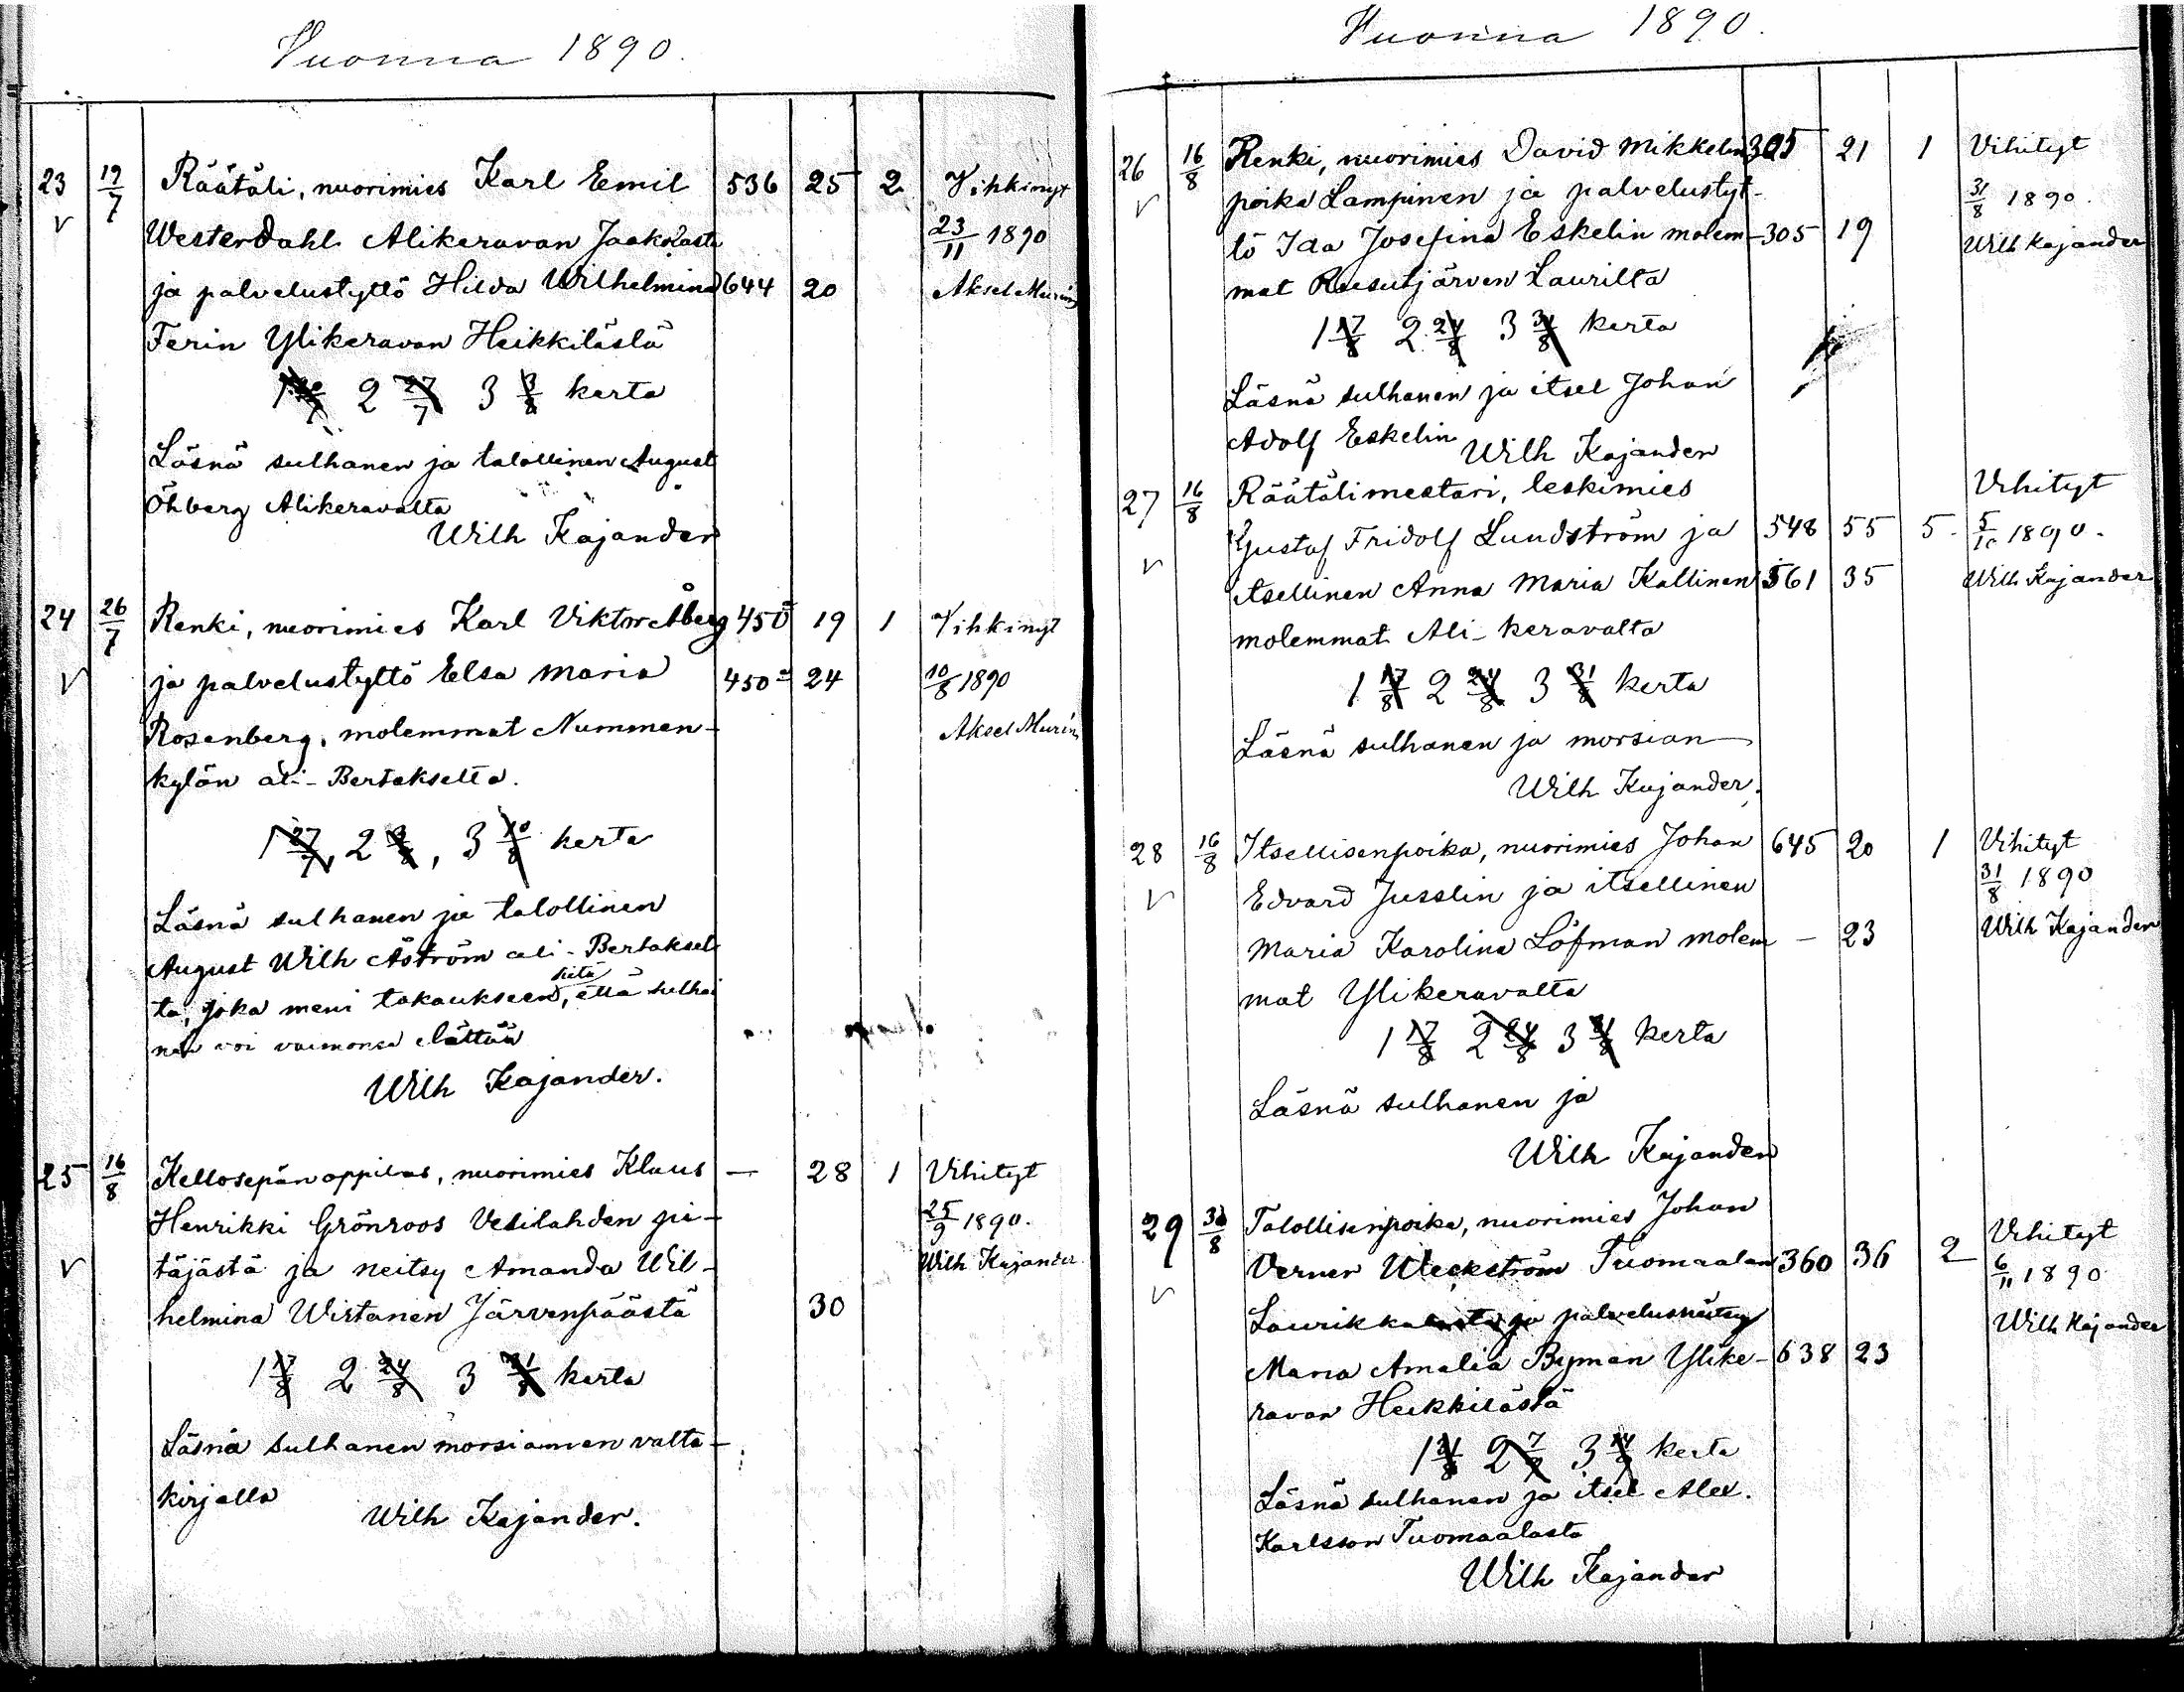 Vuonna 1890.
23 19/7 Räätäli, nuorimies Karl Emil 536 25 2 Vihkinyt
Westerdahl Alikeravan Jaakolasta 23/11 1890
ja palvelustyttö Hilda Wilhelmina 644 20 Aksel Murén
Ferin Ylikeravan Heikkilästä
1 2 27/7 3 3/8 kerta
Läsnä sulhanen ja talollinen August
Öhberg Alikeravalta
Wilh Kajander
24 26/7 Renki, nuorimies Karl Viktor Åberg 450 19 1 Vihkinyt
ja palvelustyttö Elsa Maria 450 24 10/8 1890
Rosenberg, molemmat Nummen- Aksel Murén
kylän ali-Bertakselta.
1 27/7, 2 3/8, 3 10/8 kerta
Läsnä sulhanen ja talollinen
August Wilh Åström ali-Bertaksel
ta, joka meni takaukseen siitä, että sulha
nen voi vaimonsa elättää
Wilh Kajander.
25 16/8 Kellosepän oppilas, nuorimies Klaus — 28 1 Vihityt
Henrikki Grönroos Vesilahden pi- 25/9 1890.
täjästä ja neitsy Amanda Wil- Wilh Kajander
helmina Wirtanen Järvenpäästä 30
1 17/8 2 24/8 3 31/8 kerta
Läsnä sulhanen morsiamen valta-
kirjalla
Wilh Kajander.
Vuonna 1890.
26 16/8 Renki, nuorimies David Mikkelin 305 21 1 Vihityt
poika Lampinen ja palvelustyt- 31/8 1890.
tö Ida Josefina Eskelin molem- 305 19 Wilh Kajander
mat Ruusutjärven Laurilta
1 17/8 2 24/8 3 31/8 kerta
Läsnä sulhanen ja itsel Johan
Adolf Eskelin
Wilh Kajander
27 16/8 Räätälimestari, leskimies Vihityt
Gustaf Fridolf Lundström ja 548 55 5 5/10 1890.
itsellinen Anna Maria Kallinen 561 35 Wilh Kajander
molemmat Ali-keravalta
1 17/8 2 24/8 3 31/8 kerta
Läsnä sulhanen ja morsian
Wilh Kajander.
28 16/8 Itsellisenpoika, nuorimies Johan 645 20 1 Vihityt
Edvard Jusslin ja itsellinen 31/8 1890
Maria Karolina Löfman molem — 23 Wilh Kajander
mat Ylikeravalta
1 17/8 2 24/8 3 31/8 kerta
Läsnä sulhanen ja
Wilh Kajander
29 30/8 Talollisenpoika, nuorimies Johan Vihityt
Verner Weckström Tuomaalan 360 36 2 6/11 1890
Laurikkalasta ja palvelusneitsy Wilh Kajander
Maria Amalia Byman Ylike- 638 23
ravan Heikkilästä
1 31/8 2 7/9 3 14/9 kerta
Läsnä sulhanen ja itsel Alex.
Karlsson Tuomaalasta
Wilh Kajander